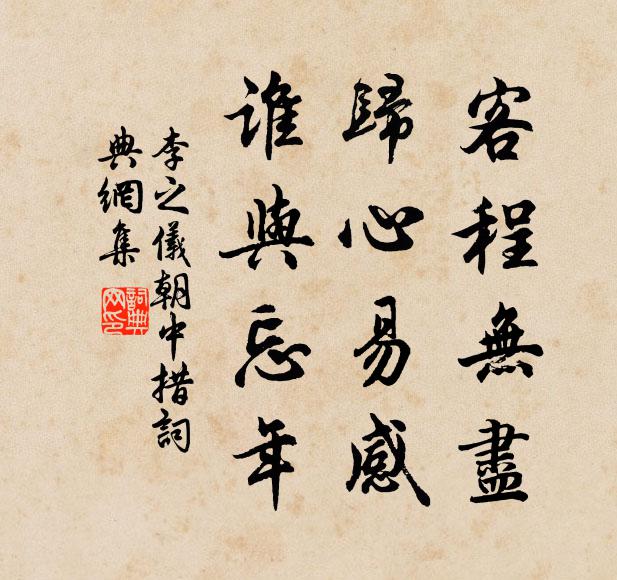 客程無盡
歸心易感
誰與忘年
李之儀朝中措詞
典網集
詞典
网印